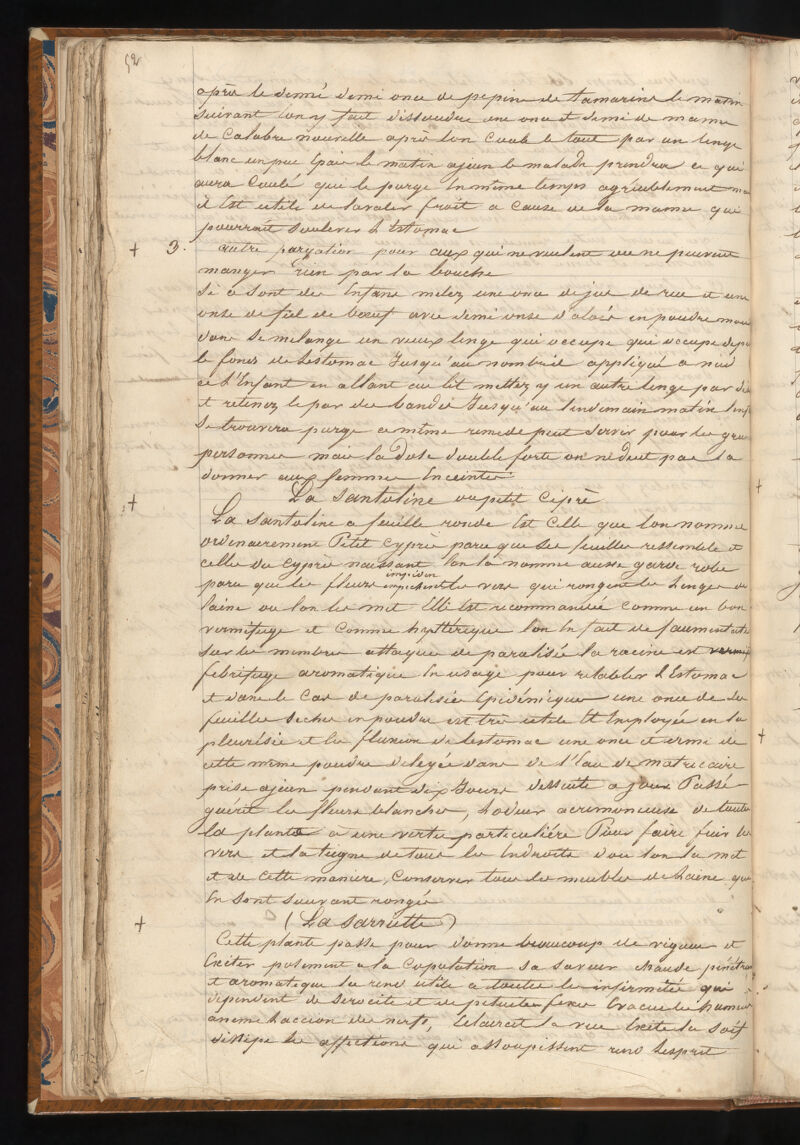 52
après le diné demi once de pepins de tamarins le matin
suivant lon y fait dissoudre une once et demi de manne
de Calabre nouvelle après lon Coule le tout par un linge
blanc un peu Epais le matin ajeun le malade prendra ce qui
aura Coulé que le purge En même temps agréablement
il Est utile de lavaler froit a Cause de la manne qui
pourrait soulever L Estomac
+ 3. autre purgation pour aux qui ne veulent ou ne peuvent
manger rien par la bouche
Si ce sont des Enfans melez une once de jus de rue et une
onse de fiel de bœuf avec demi onse d'aloès en poudre
dans se melange un vieux linge qui occupe qui occupe
le fond de Lestomac Jusqu'au nombril appliqué a nud
a l'Enfant en allant au lit mettez y un autre linge par
et retenez le par des bandes Jusqu'au lendemain matin
se trouvera purgé ce même remede peut servir pour les
personnes mais la Dose double forte on ne doit pas la
donner aux femmes Enceintes
+ La Santoline ou petit Ciprè
La Santoline a feuille ronde Est Celle que lon nomme
ordinairement Petit Cyprès parce que ses feuilles ressemble et
celle du Cyprès naissant lon la nomme aussi garde robe
parce que les fleurs empechent les vers qui rongent les Linges de
laine ou lon les met Elle Est recommandée comme un bon
vermifuge et Comme hystérique lon En fait de
sur les membres attaqués de paralisée la racine est
febrifuge aromatique En usage pour retablir L Estomac
et dans le Cas de paralisie Epidémique une once de ses
feuilles seches en poudre est très utile Et Employée en la
pleurésie et les fluxion de Lestomac une once et demi de
cette même poudre delayée dans de l'Eau de matricaire
prise ajeun pendant dix Jours dessuite a jeun Passé
guérit les fleurs blanches, Lodeur acrimonieuse de toute
la plante à une vertu particuliére Pour faire fuir les
vers et la teigne de tous les Endroits dou lon la met
et de Cette maniere, Conserver tous les meubles de Laine qui
En sont souvant rongés
+ (La Sarriette)
Cette plante passe pour donne beaucoup de vigueur et
Exciter posément a la Copulation sa saveur chaude
et aromatique la rend utile a toutes les infirmités qui
dépendent de serocité et de pituite Evacue les humeurs
anime Laccion des nerfs, Eclaircit la vue Excite la soif
dissipe les affections qui assoupissent rend Lesprit